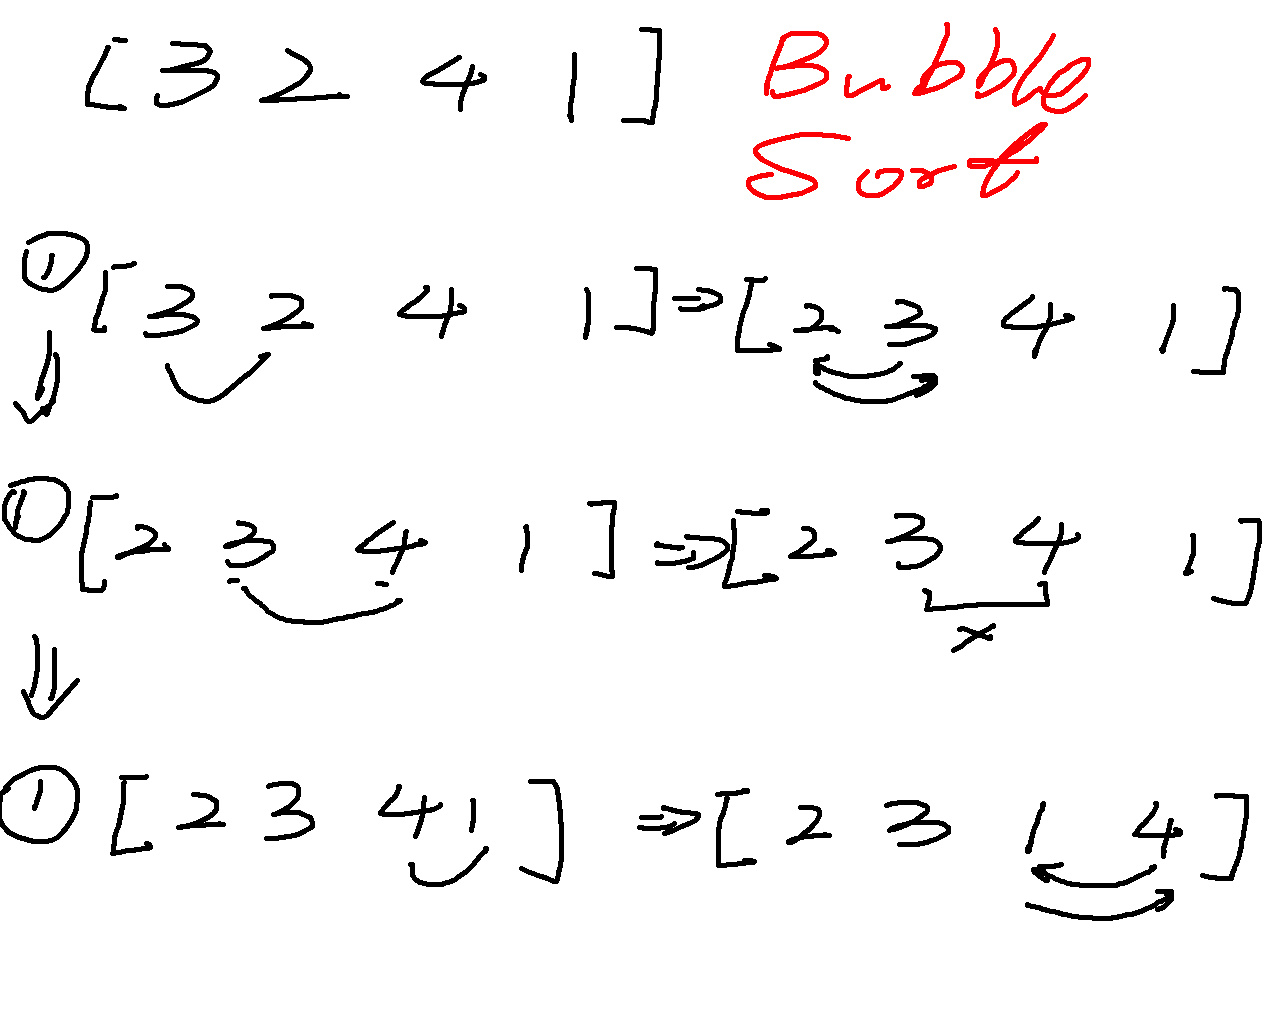 [ 3 2 4 1 ] Bubble
Sort
① [ 3 2 4 1 ] ⇒ [ 2 3 4 1 ]
① [ 2 3 4 1 ] ⇒ [ 2 3 4 1 ]
x
① [ 2 3 4 1 ] ⇒ [ 2 3 1 4 ]